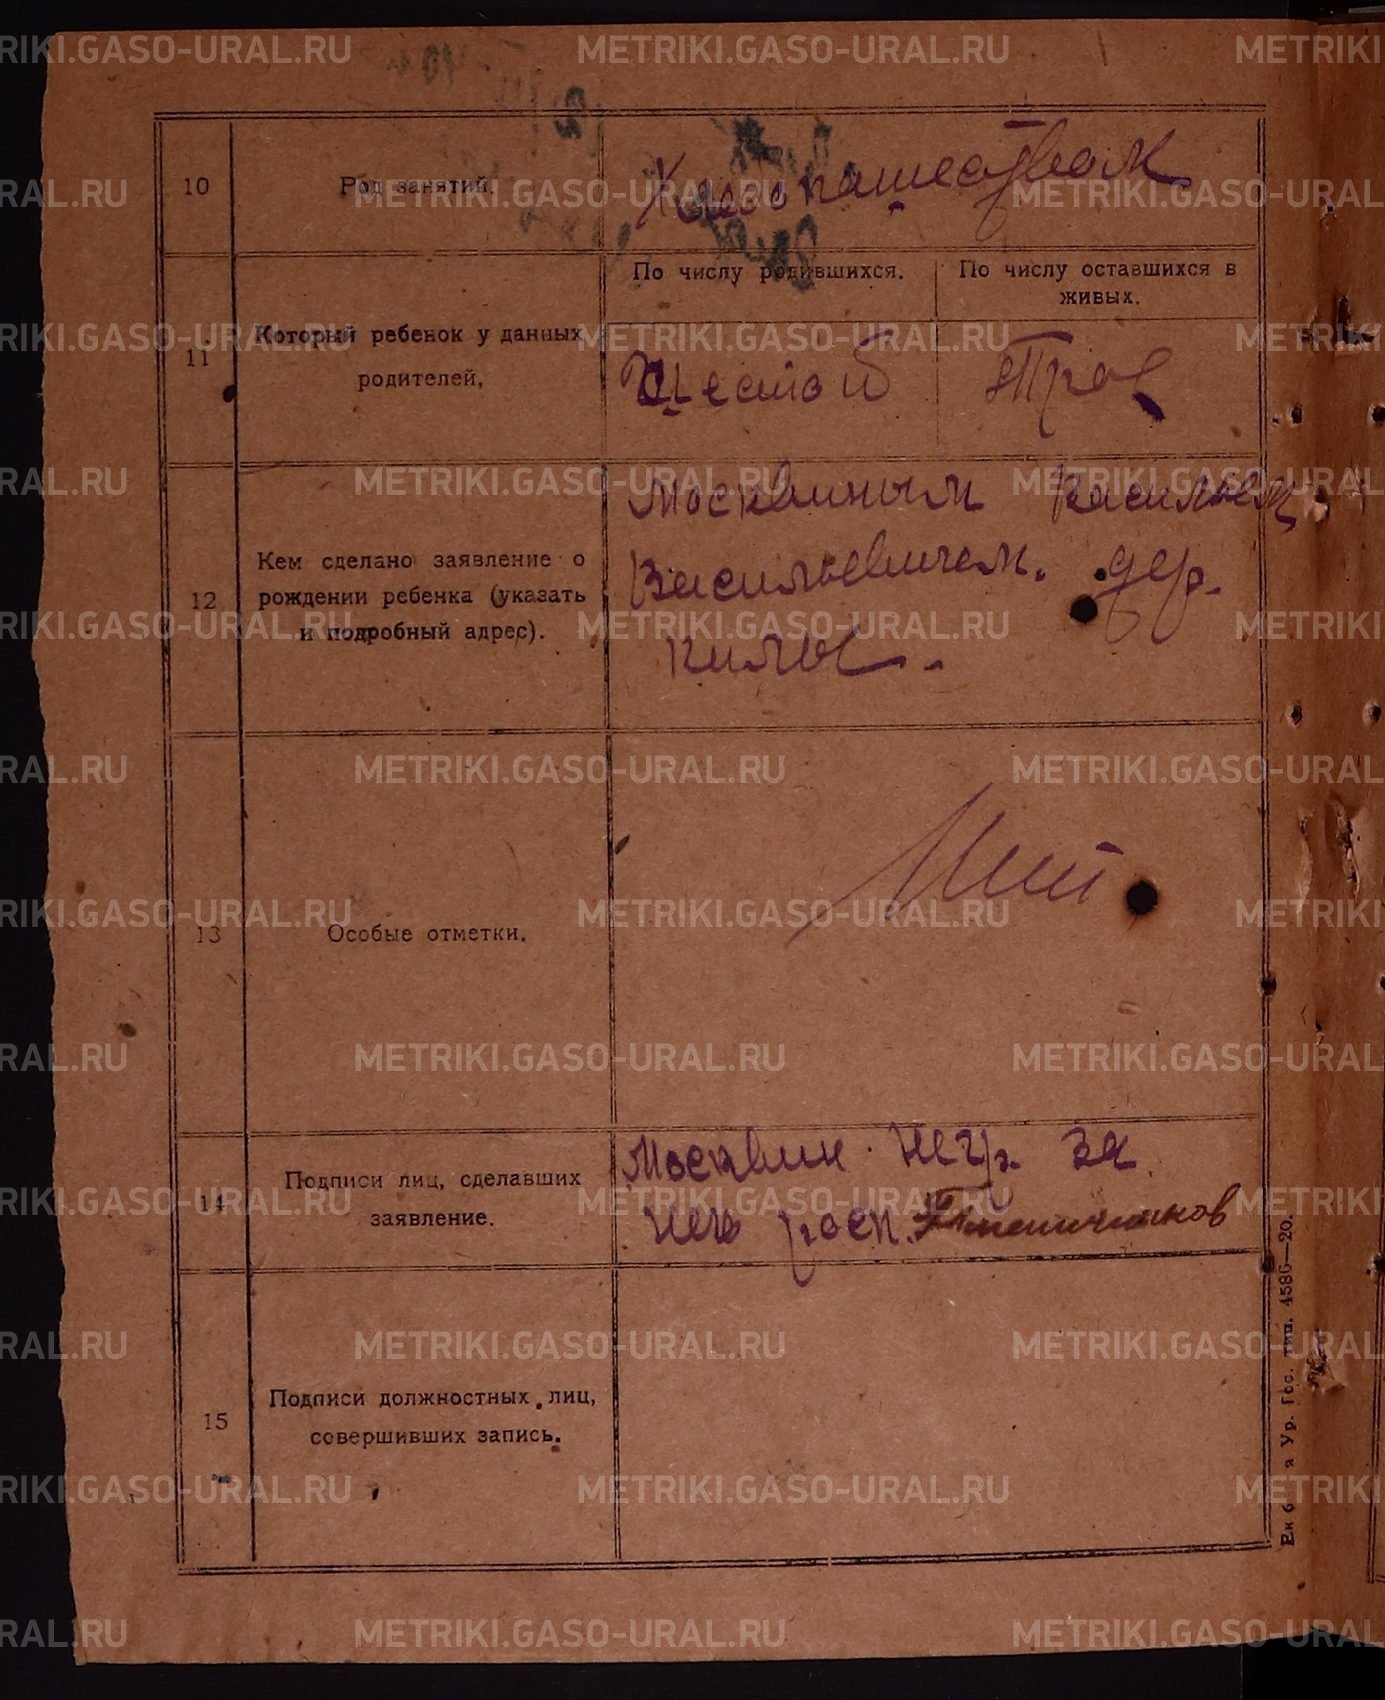 10
Род занятий.
Хлебопашеством
11
Который ребенок у данных
родителей,
По числу родившихся.
По числу оставшихся в
живых.
Шестой
12
Кем сделано заявление о
рождении ребенка (указать
и подробный адрес).
Москвиным Васильем
Васильевичем. дер.
Килы.
13
Особые отметки.
14
Подписи лиц, сделавших
заявление.
Москвин негр. за
него росп. Пшеничников
15
Подписи должностных лиц,
совершивших запись.
Ур. Гос. тип. 4586—20.
METRIKI.GASO-URAL.RU